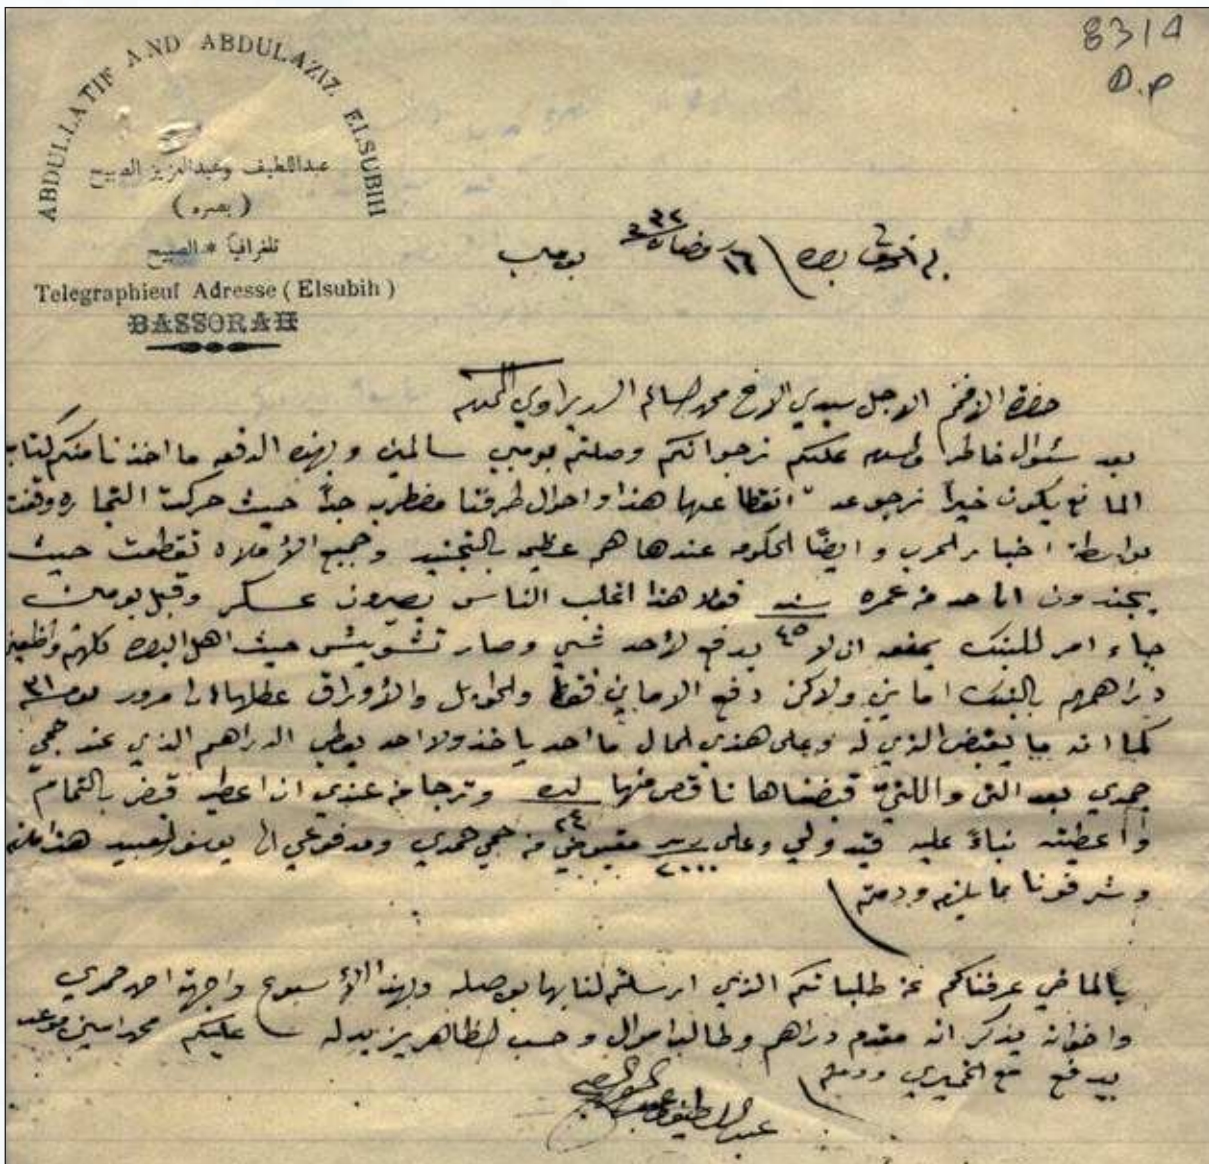 8314
D.P
ABDULLATIF AND ABDULAZIZ ELSUBIH
عبداللطيف وعبدالعزيز الصبيح
(بصره)
تلغرافياً * الصبيح
Telegraphieuf Adresse (Elsubih)
BASSORAH
بصره ١٦ رمضان ٣٣٢ بومبي
حضرة الافخم الاجل سيدي الاخ محمد سالم السديراوي المحترم
بعد سئوال خاطرك والسلام عليكم نرجوا انكم وصلتم بومبي سالمين وبهذه الدفعه ما اخذنا منكم كتاب
المانع يكون خيراً نرجو عدم انقطاعها هذا واحوال طرفنا مضطربه جداً حيث حركت التجاره وقفت
بواسطة اخبار الحرب وايضاً الحكومه عندها هم عظيم بالتجنيد وجميع الأملاه تقطعت حيث
يجندون الى حد من عمره سنه ٤٥ فعلا هذا اغلب الناس يصيرون عسكر وقبل يومين
جاء امر للبنك يمنعه ان لا يدفع لأحد شي وصار تشويش حيث اهل البصره كلهم واضعين
دراهمهم بالبنك امانن ولاكن دفع الامانن فقط والحوايل والأوراق عطلها الى مرور يوم ٣١
كما انه ما يقبض الذي له وعلى هذي الحال ما احد ياخذ ولا احد يعطي الدراهم الذي عند حجي
حمدي بعد التي واللتي قبضناها ناقص منها ليره ٢٤ وترجا من عندي ان اعطيه قبض بالتمام
واعطيته بناءً عليه قيد ولي وعلى ٢٠٠٠ مقبوضي من حجي حمدي ومدفوعي الى يوسف العبيد هذا ما لزم
وشرفونا بما يلزم ودمتم
بالماضي عرفناكم عن طلباتكم الذي ارسلتم لنا بها بوصله وبهذا الأسبوع واجهة احمد حمدي
واخوانه يذكر انه مقدم دراهم وطالب اموال وحسب الظاهر يزيد له عليكم محمد امين موعد
يدفع مع الخميري ودمتم
عبداللطيف وعبدالعزيز الصبيح